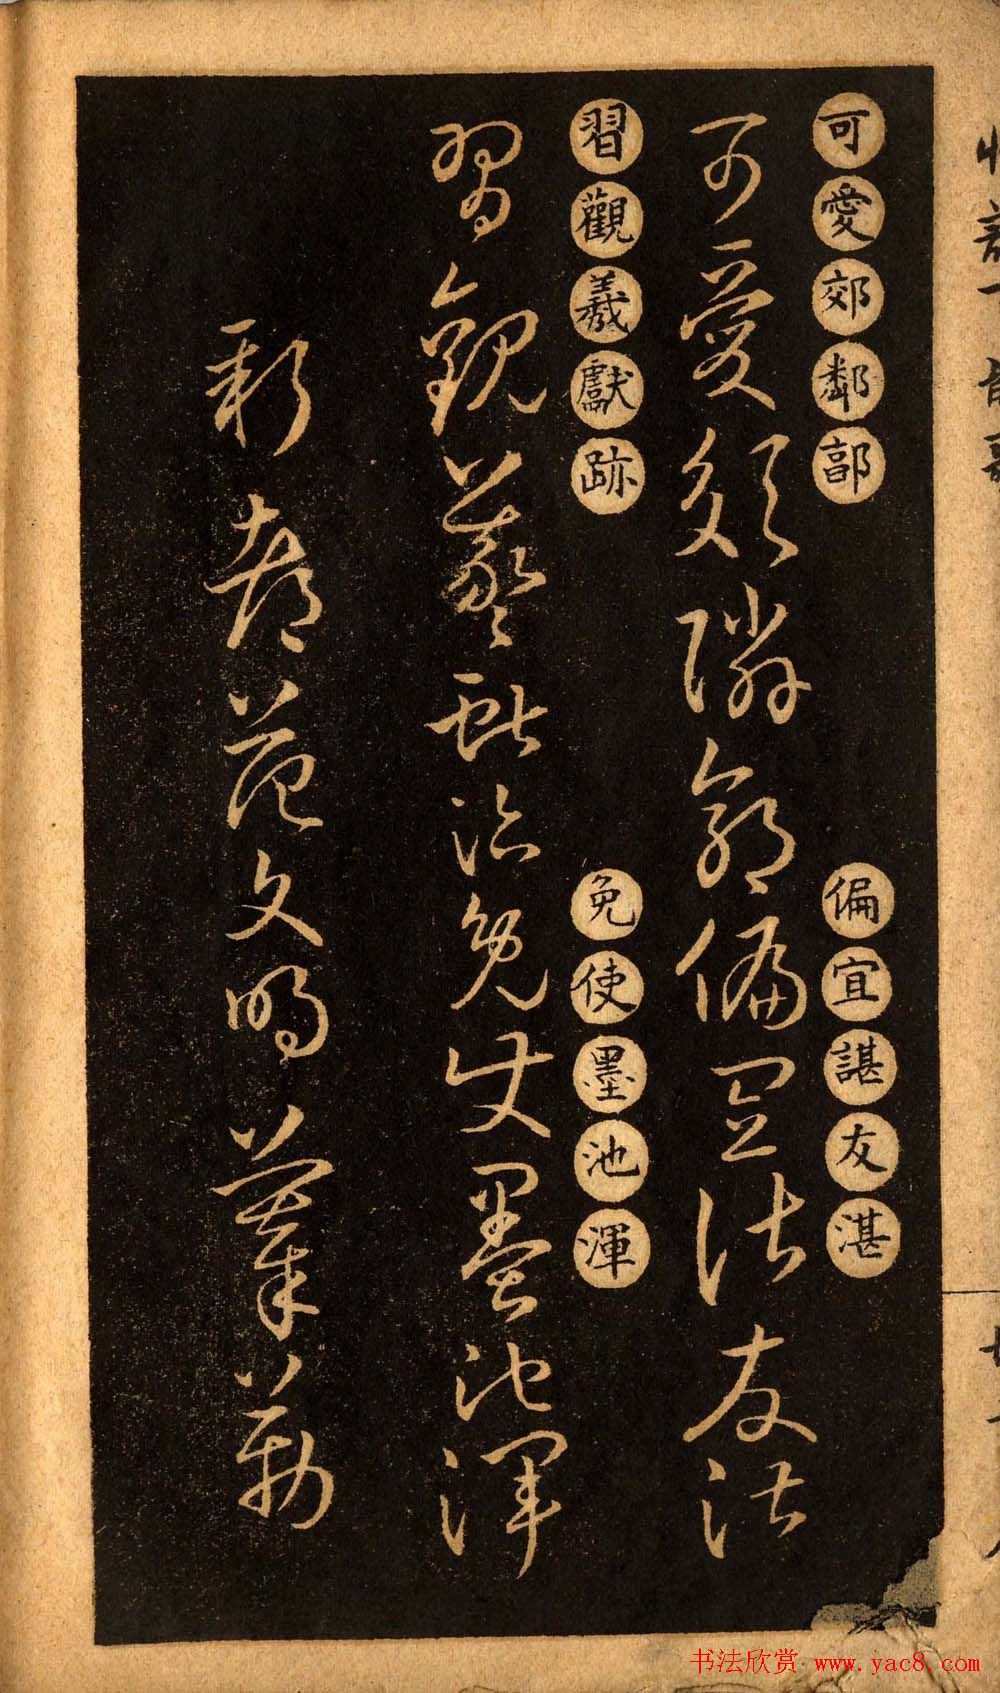 可愛郊鄰郭
偏宜諶友湛
可愛郊鄰郭偏宜諶友湛
習觀羲獻跡
免使墨池渾
習觀羲獻跡免使墨池渾
新都范文明摹勒
书法欣赏 www.yac8.com